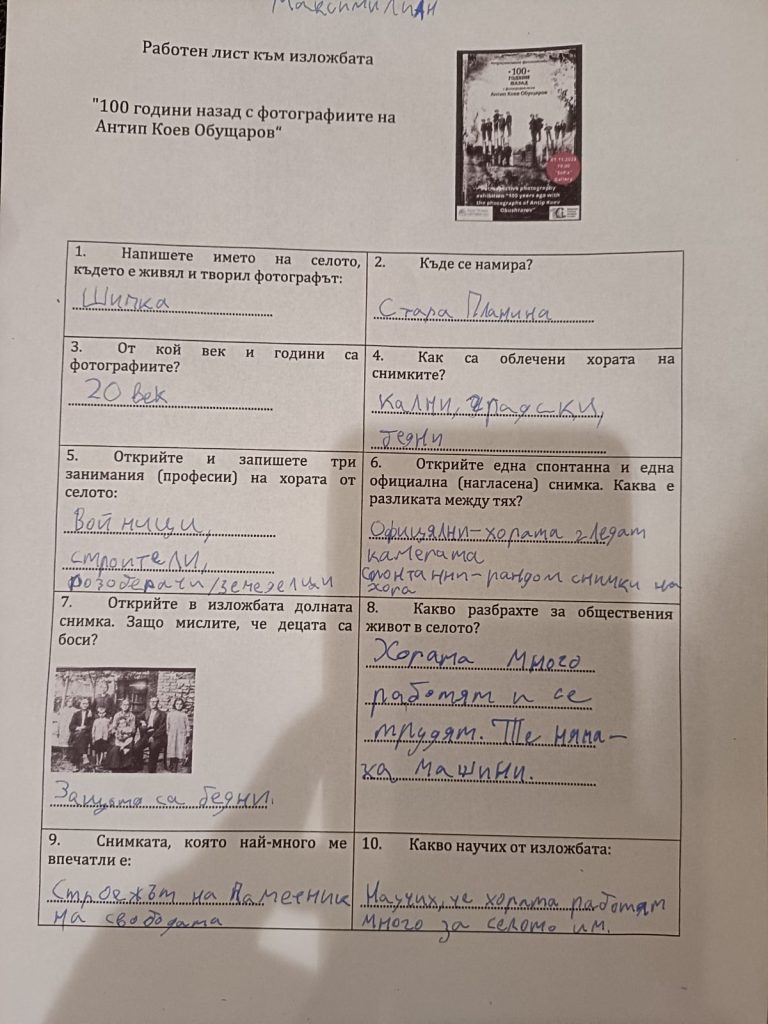 Максимилиан
Работен лист към изложбата
"100 години назад с фотографиите на
Антип Коев Обущаров“
•100•
ГОДИНИ
НАЗАД
Антип Коев Обущаров
01.11.2023
Retrospective photography
exhibition "100 years ago with
the photographs of Antip Koev
Obushtarov"
1. Напишете името на селото,
където е живял и творил фотографът:
Шипка
2. Къде се намира?
Стара Планина
3. От кой век и години са
фотографиите?
20 век
4. Как са облечени хората на
снимките?
кални, градски,
бедни
5. Открийте и запишете три
занимания (професии) на хората от
селото:
Войници,
строители,
розоберачи/земеделци
6. Открийте една спонтанна и една
официална (нагласена) снимка. Каква е
разликата между тях?
Офицялни-хората гледат
камерата
спонтанни-рандом снимки на
хора
7. Открийте в изложбата долната
снимка. Защо мислите, че децата са
боси?
Защото са бедни.
8. Какво разбрахте за обществения
живот в селото?
Хората много
работят и се
трудят. Те няма-
ха машини.
9. Снимката, която най-много ме
впечатли е:
Строежът на Паметник
на свободата
10. Какво научих от изложбата:
Научих, че хората работят
много за селото им.